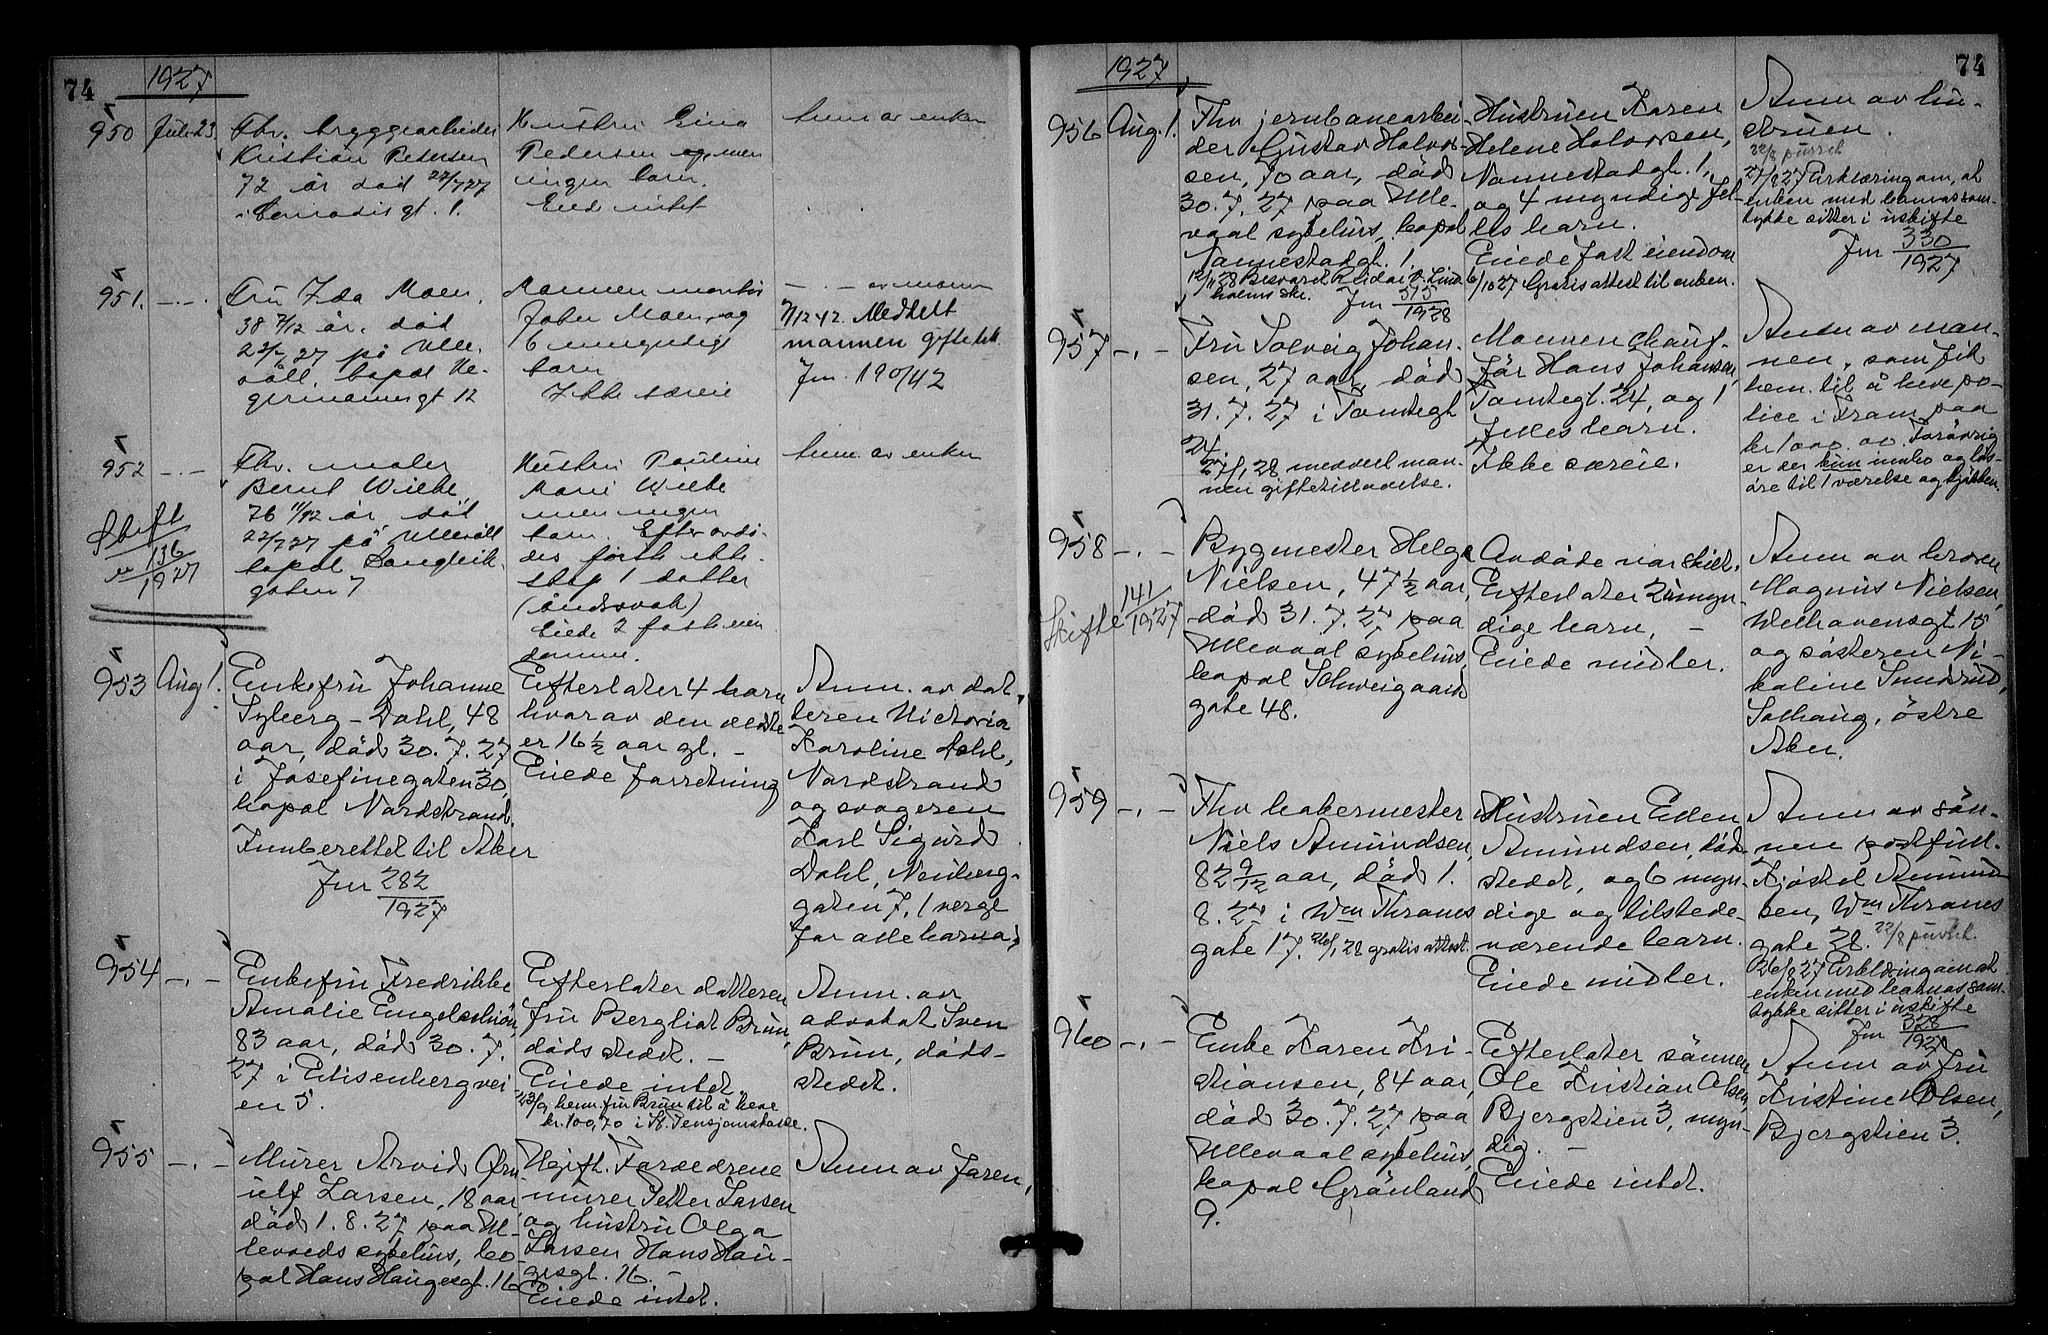 74
1927
950
Juli 23.
Fhv. bryggearbeider
Kristian Pedersen
72 år død 22/7 27
gt. 1.
Hustru Gina
Pedersen men
ingen barn.
Eied intet
hun av enken
951.
-.-
Fru Ida Moen,
38 7/12 år. død
23/7 27 på Ulle-
våll, bopæl He-
germannsgt 12
Mannen montør
Johan Moen og
6 umyndige
barn
Ikke særeie
-.- av mannen
7/12 42. Meddelt
mannen giftetill.
Jnr. 190/42
952
-.-
Skift
nr 136
1927
Fhv. maler
Bernt Wiebe
76 11/12 år, død
22/7 27 på Ullevåll
bopæl Langleik-
gaten 7
Hustru Pauline
Marie Wiebe
men ingen
barn. Efter avdø-
des første ekte-
skap 1 datter
(åndssvak)
Eiede 2 faste eien
domme.
hun av enken
953
Aug 1.
Enkefru Johanne
Syberg-Dahl, 48
aar, død 30.7.27
i Josefinegaten 30,
bopæl Nordstrand.
Innberettet til Aker
Jnr 282
1927
Efterlater 4 barn
hvorav den ældste
er 16½ aar gl. -
Eiede forretning
Anm. av dat-
teren Victoria
Karoline Dahl,
Nordstrand
og svogeren
Karl Sigurd
Dahl, Neuberg-
gaten 7, 1 verge
for alle barna.
954
-.-
Enkefru Fredrikke
Amalie Engelschiøn,
83 aar, død 30.7.
27 i Eilisenbergvei-
en 5.
Efterlater datteren
fru Bergliot Brun,
dødsstedet. -
Eiede intet.
23/9 bem. fru Brun til å heve
kr. 100,70 i St. Pensjonskasse.
Anm. av
advokat Sven
Brun, døds-
stedet.
955
-.-
Murer Arvid Ørn
ulf Larsen, 18 aar
død 1.8.27 paa Ul-
levolds sykehus, bo-
pæl Hans Haugesgt. 16
Ugift. Forældrene
murer Petter Larsen
og hustru Olga
Larsen Hans Hau-
gesgt. 16. -
Eiede intet.
Anm av faren,
74
1927
956
Aug. 1.
Fhv jernbanearbei-
der Gustav Halvor-
sen, 70 aar, død
30.7.27 paa Ulle-
vaal sykehus, bopæl
Nannestadgt. 1.
12/11 28 Besvaret
holms skr. Jnr 515
1928
Hustruen Karen
Helene Halvorsen,
Nannestadgt. 1,
og 4 myndige fel-
les barn.
Eiede fast eiendom
6/10 27 Gratis attest til enken.
Anm av hu-
struen.
22/8 purret
27/8 27 Erklæring om, at
enken med barnas sam-
tykke sitter i uskifte
Jnr 330
1927
957
-.-
Fru Solveig Johan-
sen, 27 aar, død
31.7.27 i Tomtegt
24.
27/1 28 meddelt man-
nen giftetilladelse.
Mannen chauf-
før Hans Johansen,
Tomtegt. 24, og 1
felles barn.
Ikke særeie.
Anm av man-
nen, som fik
bem. til å heve po-
lice i Fram paa
kr 1000.00. Forøvrig
er der kun innbo og løs-
øre til 1 værelse og kjøkken.
958
-.-
Skifte 141
1927
Bygmester Helge
Nielsen, 47½ aar,
død 31.7.27 paa
Ullevaal sykehus,
bopæl Schweigaards
gate 48.
Avdøde var skilt.
Efterlater 2 umyn-
dige barn, -
Eiede midler.
Anm av broren
Magnus Nielsen,
Welhavensgt 15
og søsteren Ni-
koline Sundrud,
Solhaug, østre
Aker.
959
-.-
Fhv bakermester
Niels Amundsen,
82 9/12 aar, død 1.
8.27 i Wm Thranes
gate 17. 26/1 28 gratis attest.
Hustruen Ellen
Amundsen, død-
stedet, og 6 myn-
dige og tilstede-
værende barn.
Eiede midler.
Anm av søn-
nen postfull.
Kjøstel Amund
sen, Wm Thranes
gate 28. 22/8 purret.
26/8 27 Erklæring om at
enken med barnas sam-
tykke sitter i uskifte
Jnr 328
1927
960
-.-
Enke Karen Kri-
stiansen, 84 aar,
død 30.7.27 paa
Ullevaal sykehus,
bopæl Grønland
9.
Efterlater sønnen
Ole Kristian Olsen,
Bjergstien 3, myn-
dig. -
Eiede intet.
Anm av fru
Kristine Olsen,
Bjergstien 3.